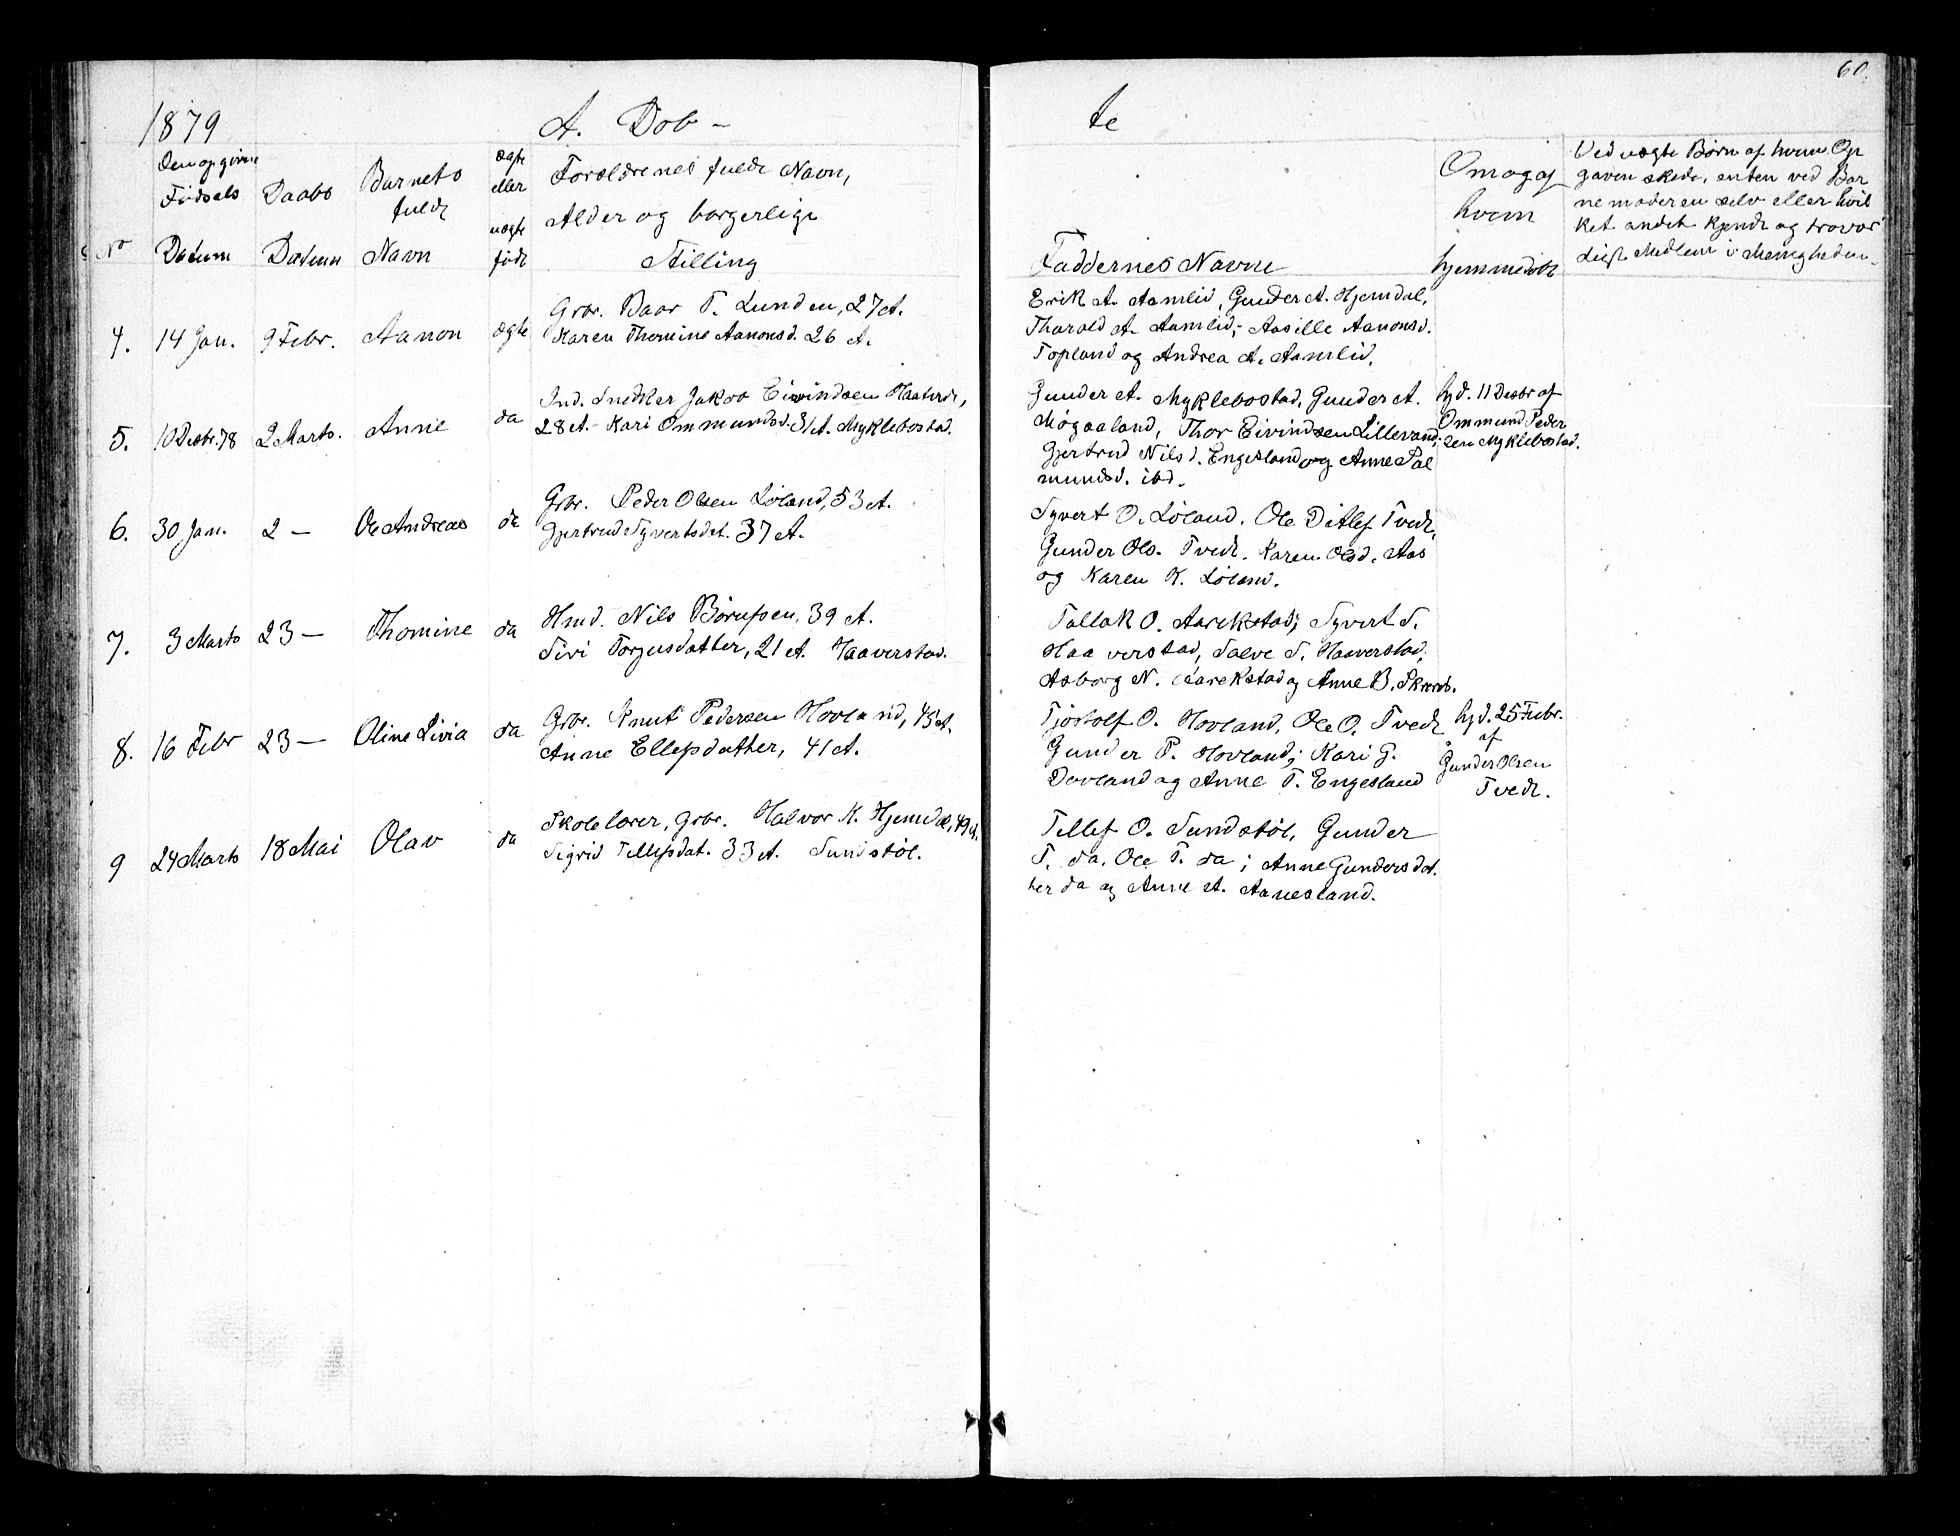 60.
1879
A. Døb-
te
Den opgivne
Fødsels
Datum
No
Daabs
Datum
Barnets
fulde
Navn
ægte
eller
uægte
født
Forældrenes fulde Navn,
Alder og borgerlige
Stilling
Faddernes Navne
Om og af
hvem
hjemmedøbt
Ved uægte Børn af hvem Op
gaven skede, enten ved Bar
nemoderen selv eller hvil
ket andet kjendt og trovær
digt Medlem i Menigheden.
4. 14 Jan. 9 Febr. Aanon ægte
Gbr. Baar T. Lunden, 27 A.
Karen Thomine Aanonsd. 26 A.
Erik A. Aamlid, Gunder A. Hjemdal,
Tharald A. Aamlid; Aasille Aanonsd.
Topland og Andrea A. Aamlid.
5. 10 Desbr. 78 2 Marts. Anne do
Ind. Snedker Jakob Eivindsen
28 A. Kari Ommundsd. 31 A. Myklebostad.
Gunder A. Myklebostad, Gunder A.
Møgaaland, Thor Eivindsen Lillevand;
Gjertrud Nilsd. Engesland og Anne Sal
mundsd. ibd.
hjd. 11 Desbr af
Ommund Peder
sen Myklebostad.
6. 30 Jan. 2 — Ole Andreas do
Gbr. Peder Olsen Løland, 53 A.
Gjertrud Syvertsdat. 37 A.
Syvert O. Løland, Ole Ditlef Tvedt,
Gunder Ols. Tvedt. Karen Olsd. Aas
og Karen K. Løland.
7. 3 Marts 23 — Thomine do
Hmd. Nils Børufsen, 39 A.
Siri Torjusdatter, 21 A. Haaverstad.
Tallak O. Aarekstad; Syvert S.
Haaverstad, Salve S. Haaverstad,
Asborg N. Aarekstad og Anne B.
8. 16 Febr 23 — Oline Livia do
Gbr. Knut Pedersen Hovland, 45 A.
Anne Ellefsdatter, 41 A.
Tjøstolf O. Hovland, Ole O. Tvedt
Gunder P. Hovland; Kari G.
Dovland og Anne T. Engesland
hjd. 25 Febr.
af
Gunder Olsen
Tvedt.
9 24 Marts 18 Mai Olav do
Skolelærer, Gbr. Halvor K. Hjemdal, 49 A.
Sigrid Tellefsdat. 33 A. Sundstøl.
Tellef O. Sundstøl, Gunder
T. do, Ole T. do; Anne Gundersdat
ter do og Anne A. Aanesland.